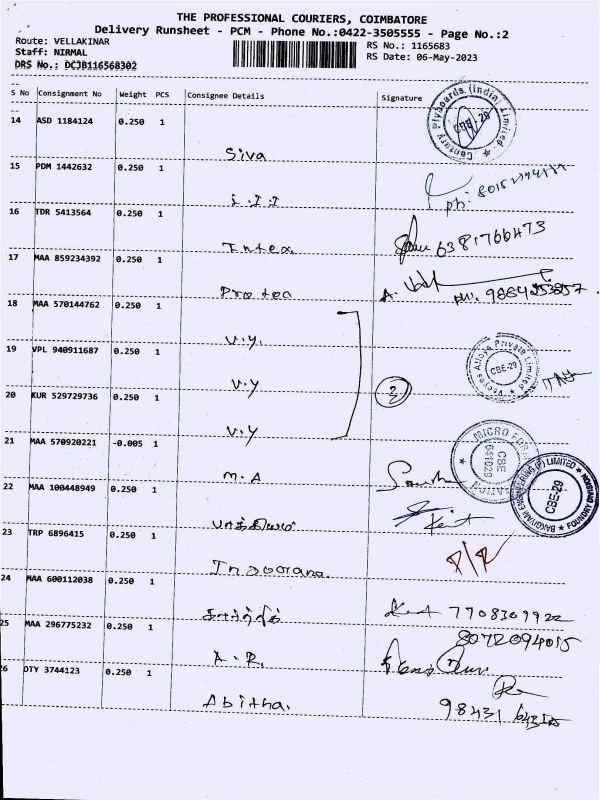 THE PROFESSIONAL COURIERS, COIMBATORE
Delivery Runsheet - PCM - Phone No.:0422-3505555 - Page No.:2
Route: VELLAKINAR
Staff: NIRMAL
DRS No.: DCJB116568302
RS No.: 1165683
RS Date: 06-May-2023
S No Consignment No Weight PCS Consignee Details Signature
14 ASD 1184124 0.250 1
Siva
Century Plyboards (India) Limited
15 PDM 1442632 0.250 1
I.I.I
ph:
16 TDR 5413564 0.250 1
Intex
6381766473
17 MAA 859234392 0.250 1
Protec
A.
PH. 9864253857
18 MAA 570144762 0.250 1
V.Y.
19 VPL 940911687 0.250 1
V.Y
Alloys Private Limited
CBE-29
20 KUR 529729736 0.250 1
V.Y
3
21 MAA 570920221 -0.005 1
M.A
MICRO
CBE
641029
22 MAA 100448949 0.250 1
பாக்கியம்
BAGIYAM ENGINEERING (P) LIMITED
FOUNDRY DIVISION
CBE-29
23 TRP 6896415 0.250 1
24 MAA 600112038 0.250 1
கார்த்திக்
7708309922
25 MAA 296775232 0.250 1
A.R.
8072094015
26 DTY 3744123 0.250 1
Abitha.
98431